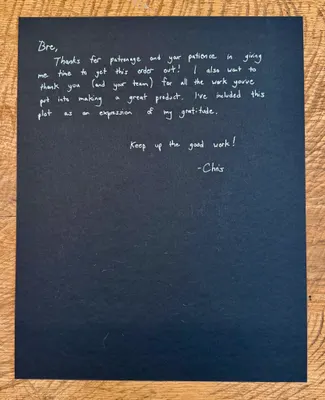 Bre,
Thanks for patronage and your patience in giving
me time to get this order out! I also want to
thank you (and your team) for all the work you've
put into making a great product. I've included this
plot as an expression of my gratitude.
Keep up the good work!
-Chris